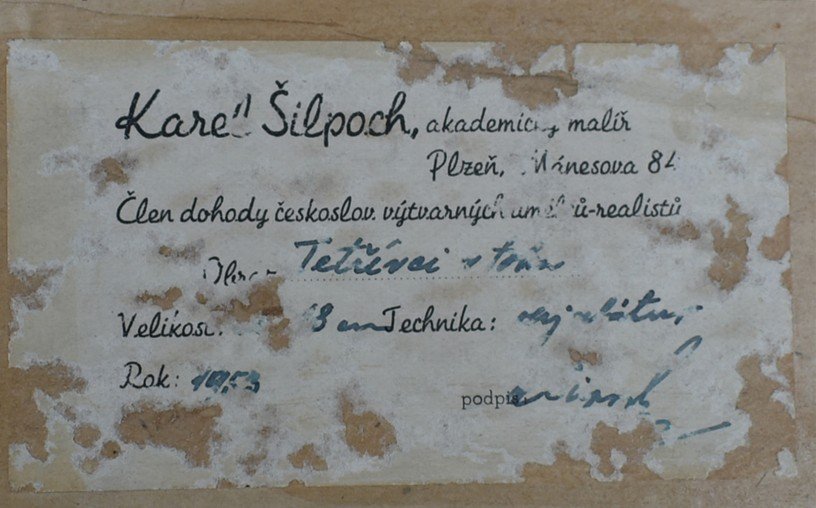 Karel Šilpoch, akademický malíř
Plzeň, Mánesova 84
Člen dohody českoslov. výtvarných umělců-realistů
Obraz Tetřívci
Velikost: 18 cm Technika:
Rok: 1953
podpis: